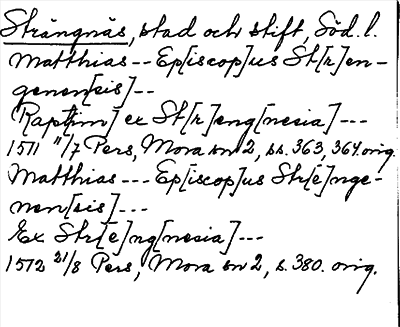 Strängnäs, stad och stift, Söd. l.
Matthias -- Ep[iscop]us St[r]en-
genen[sis] --
Rap[tim] ex St[r]eng[nesia] ---
1511 11/7 Pers, Mora sn 2, ss. 363, 364. orig.
Matthias --- Ep[iscop]us Str[e]nge-
nen[sis] ---
Ex Str[e]ng[nesia] ---
1512 21/8 Pers, Mora sn 2, s. 380. orig.